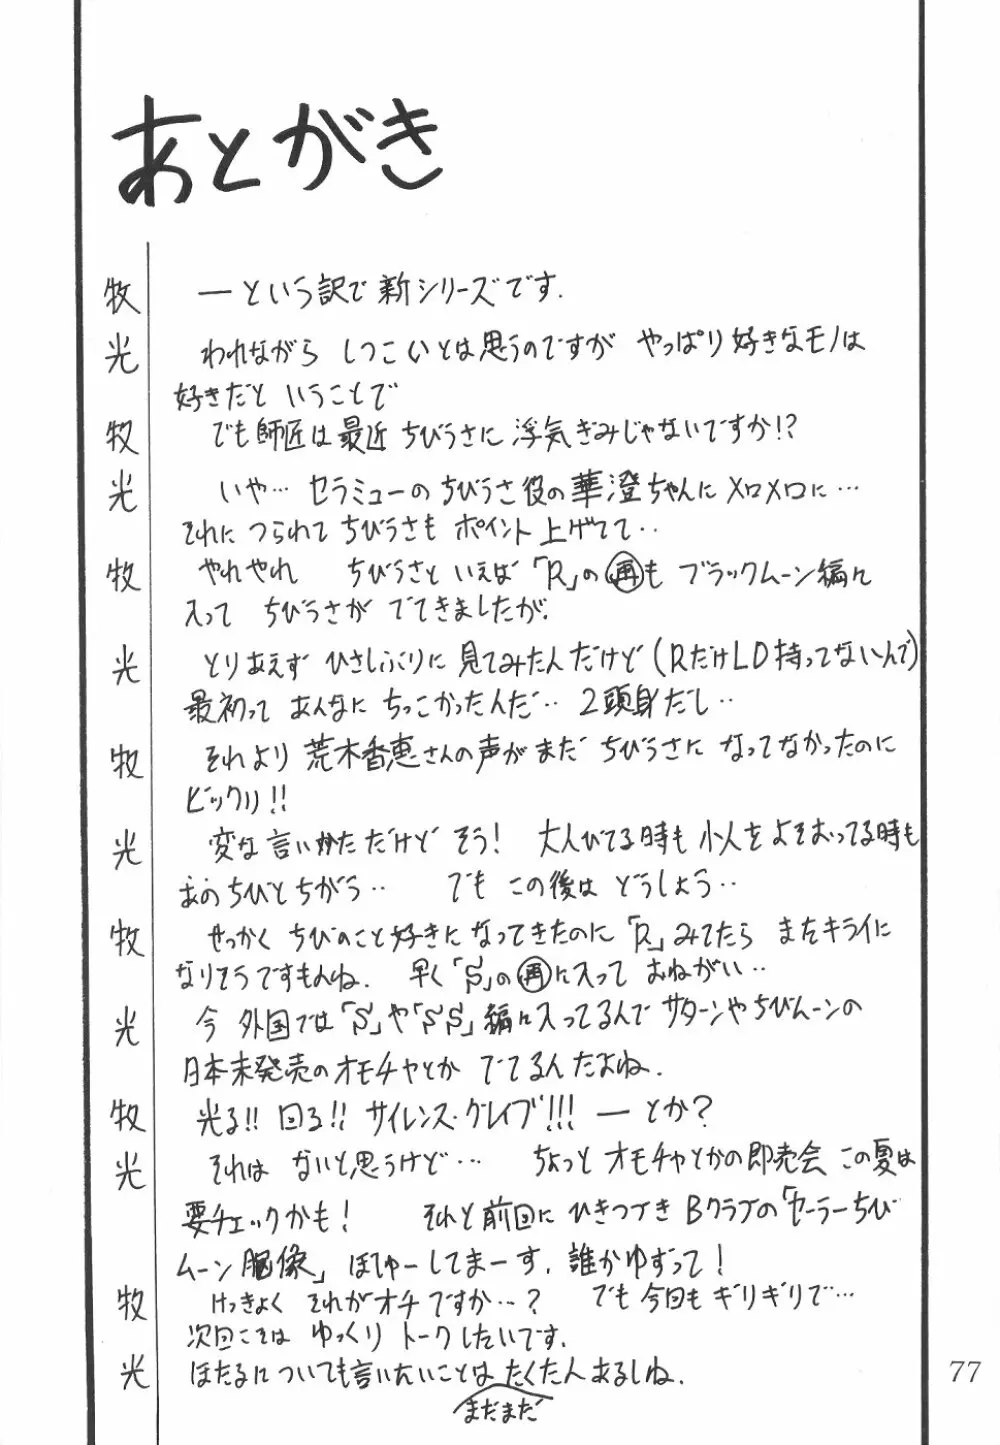 あとがき
牧 ―という訳で新シリーズです.
光 われながら しつこいとは思うのですが やっぱり好きなモノは
好きだと いうことで
牧 でも師匠は最近 ちびうさに 浮気ぎみじゃないですか!?
光 いや… セラミューのちびうさ役の華澄ちゃんにメロメロに…
それに つられて ちびうさも ポイント上げてて‥
牧 やれやれ ちびうさと いえば「R」の再も ブラックムーン編に
入って ちびうさが でてきましたが.
光 とりあえず ひさしぶりに 見てみたんだけど(RだけLD持ってないんで)
最初って あんなに ちっこかったんだ‥ 2頭身だし‥
牧 それより 荒木香恵さんの声が まだ ちびうさに なってなかったのに
ビックリ!!
光 変な言いかただけど そう! 大人びてる時も 小人をよそおってる時も
あのちびとちがう‥ でも この後は どうしよう‥
牧 せっかく ちびのこと好きになってきたのに「R」みてたら またキライに
なりそうですもんね. 早く「S」の再に入って おねがい‥
光 今 外国では「S」や「SS」編に入ってるんで サターンやちびムーンの
日本未発売のオモチャとか でてるんだよね.
牧 光る!! 回る!! サイレンス・グレイブ!!! ―とか?
光 それは ないと思うけど… ちょっと オモチャとかの即売会 この夏は
要チェックかも! それと前回に ひきつづき Bクラブの「セーラーちび
ムーン胸像」ぼしゅーしてまーす. 誰かゆずって!
牧 けっきょく それがオチですか…? でも今回も ギリギリで…
次回こそは ゆっくり トークしたいです.
光 ほたるについても言いたいことは たくたん あるしね.
まだまだ
77